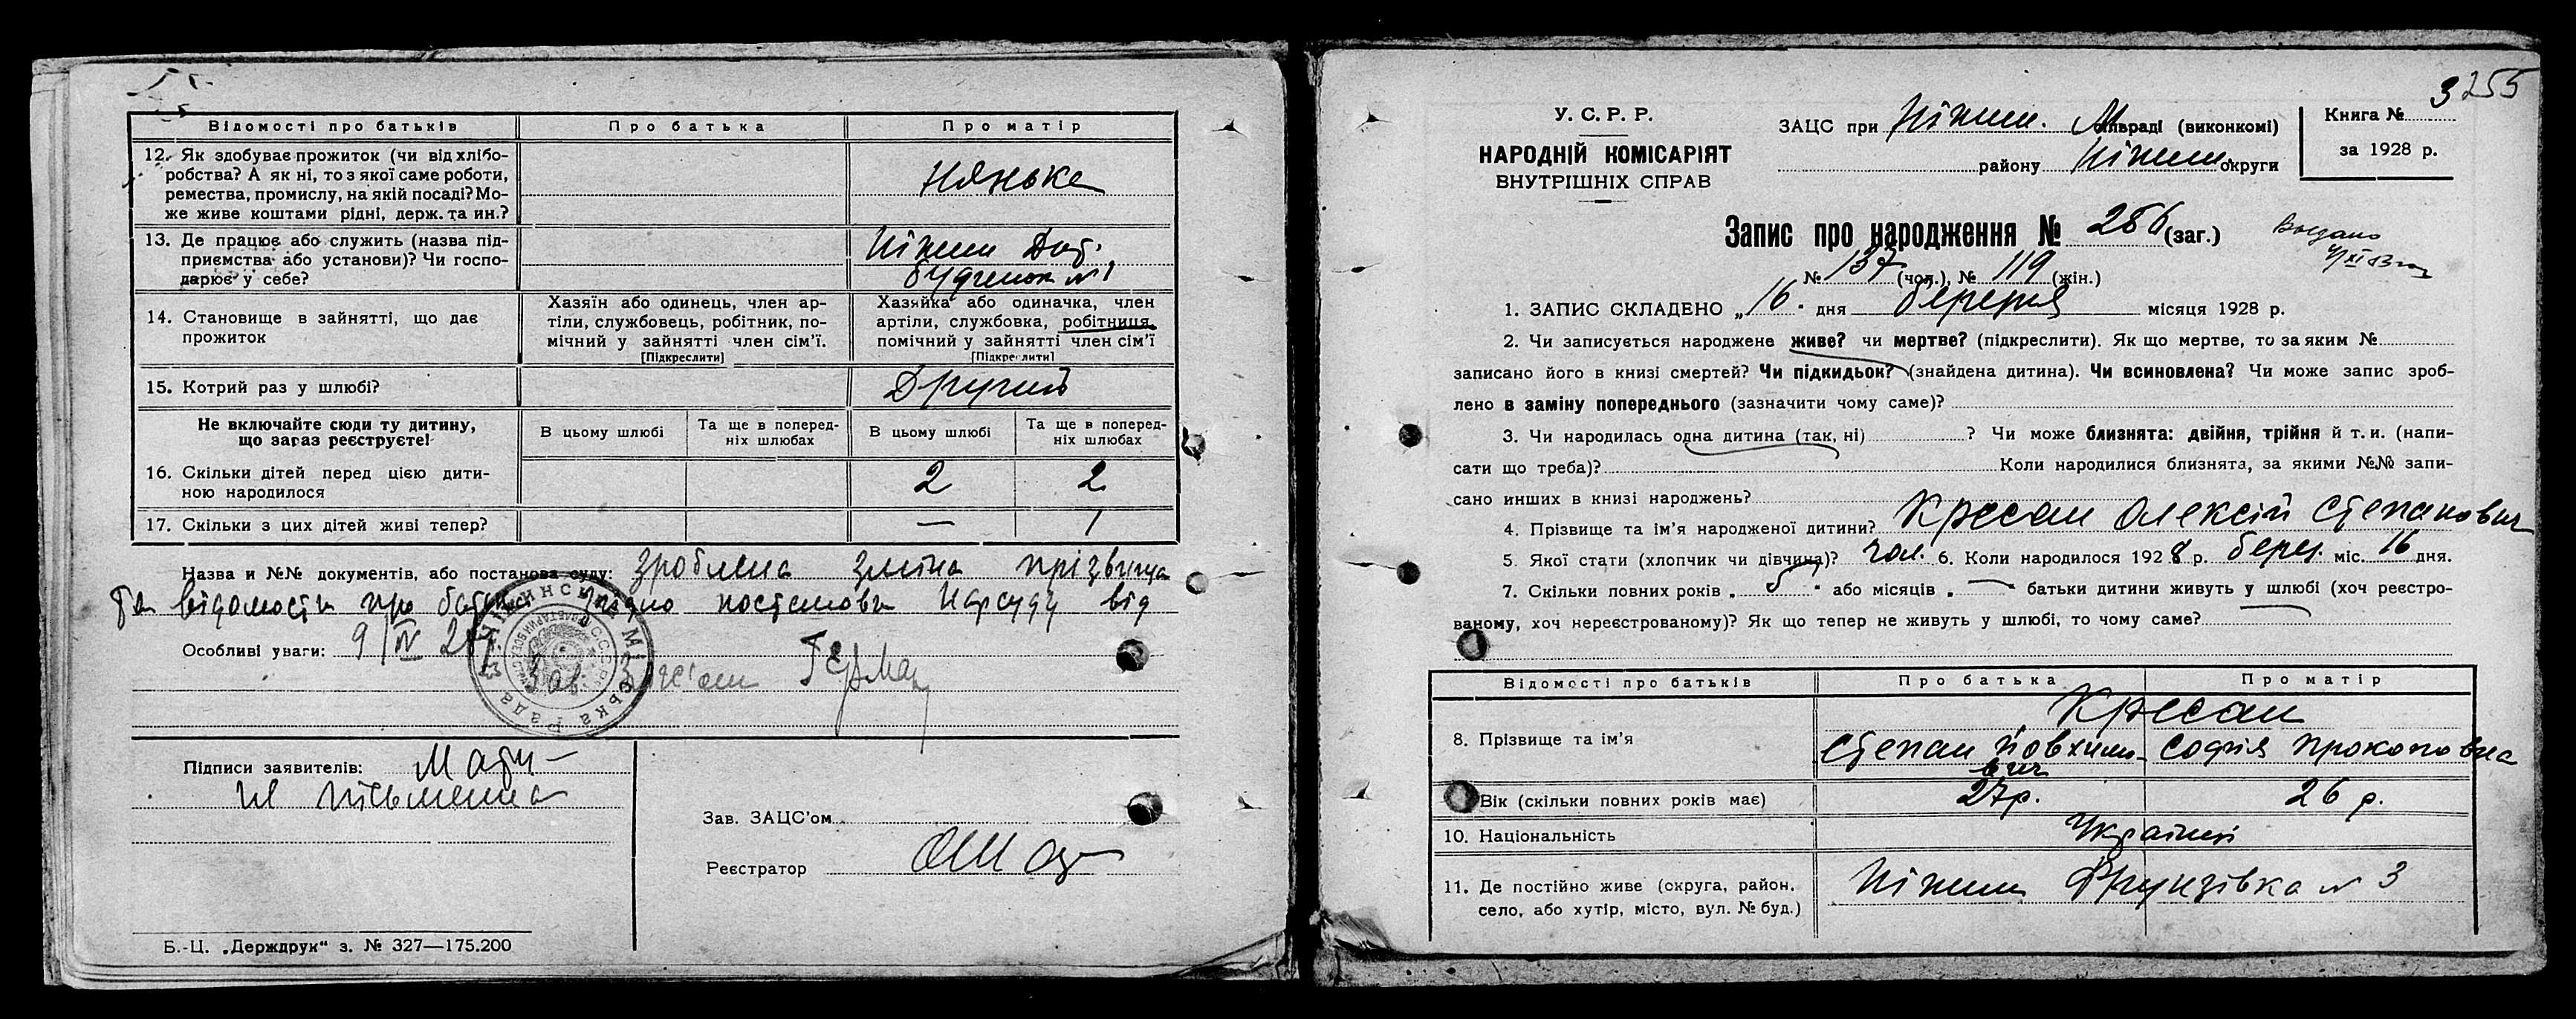 Відомості про батьків Про батька Про матір
12. Як здобуває прожиток (чи від хлібо-
робства? А як ні, то з якої саме роботи,
ремества, промислу, на якій посаді? Мо-
же живе коштами рідні, держ. та ин.?
Нянька
13. Де працює або служить (назва під-
приємства або установи)? Чи госпо-
дарює у себе?
Ніжин Дит.
будинок №1
14. Становище в зайнятті, що дає
прожиток
Хазяїн або одинець, член ар-
тілі, службовець, робітник, по-
мічний у зайнятті член сім'ї.
[Підкреслити]
Хазяйка або одиначка, член
артіли, службовка, робітниця,
помічний у зайнятті член сім'ї
[Підкреслити]
15. Котрий раз у шлюбі? Другий
Не включайте сюди ту дитину,
що зараз реєструєте!
В цьому шлюбі Та ще в поперед-
ніх шлюбах В цьому шлюбі Та ще в поперед-
ніх шлюбах
16. Скільки дітей перед цією дити-
ною народилося 2 2
17. Скільки з цих дітей живі тепер? — 1
Назва и №№ документів, або постанова суду: зроблена зміна прізвища
та відомости про батька згідно постанови Нарсуду від
Особливі уваги: 9/IV 28 р.
Зав. Загсом Герман
Ніжинська Міська Рада
Підписи заявителів: Мати —
не письменна
Зав. ЗАЦС'ом
Реєстратор
Б.-Ц. „Держдрук“ з. № 327—175.200
3 255
У. С. Р. Р.
НАРОДНІЙ КОМІСАРІЯТ
ВНУТРІШНІХ СПРАВ
ЗАЦС при Ніжин. М сільраді (виконкомі)
району Ніжин. округи
Книга №
за 1928 р.
Запис про народження № 256 (заг.)
Видано
№ 137 (чол.), № 119 (жін.)
1. ЗАПИС СКЛАДЕНО „16“ дня березня місяця 1928 р.
2. Чи записується народжене живе? чи мертве? (підкреслити). Як що мертве, то за яким №
записано його в книзі смертей? Чи підкидьок? (знайдена дитина). Чи всиновлена? Чи може запис зроб-
лено в заміну попереднього (зазначити чому саме)?
3. Чи народилась одна дитина (так, ні) ? Чи може близнята: двійня, трійня й т. и. (напи-
сати що треба)? Коли народилися близнята, за якими №№ запи-
сано инших в книзі народжень?
4. Прізвище та ім'я народженої дитини? Кресан Олексій Степанович
5. Якої стати (хлопчик чи дівчина)? чол. 6. Коли народилося 1928 р. берез. міс. 16 дня.
7. Скільки повних років „5“ або місяців „—“ батьки дитини живуть у шлюбі (хоч реєстро-
ваному, хоч нереєстрованому)? Як що тепер не живуть у шлюбі, то чому саме?
Відомості про батьків Про батька Про матір
Кресан
8. Прізвище та ім'я Степан Йовхимо-
вич Софія Прокоповна
Вік (скільки повних років має) 27 р. 26 р.
10. Національність Українці
11. Де постійно живе (округа, район,
село, або хутір, місто, вул. № буд.)
Ніжин Фрунзівка № 3